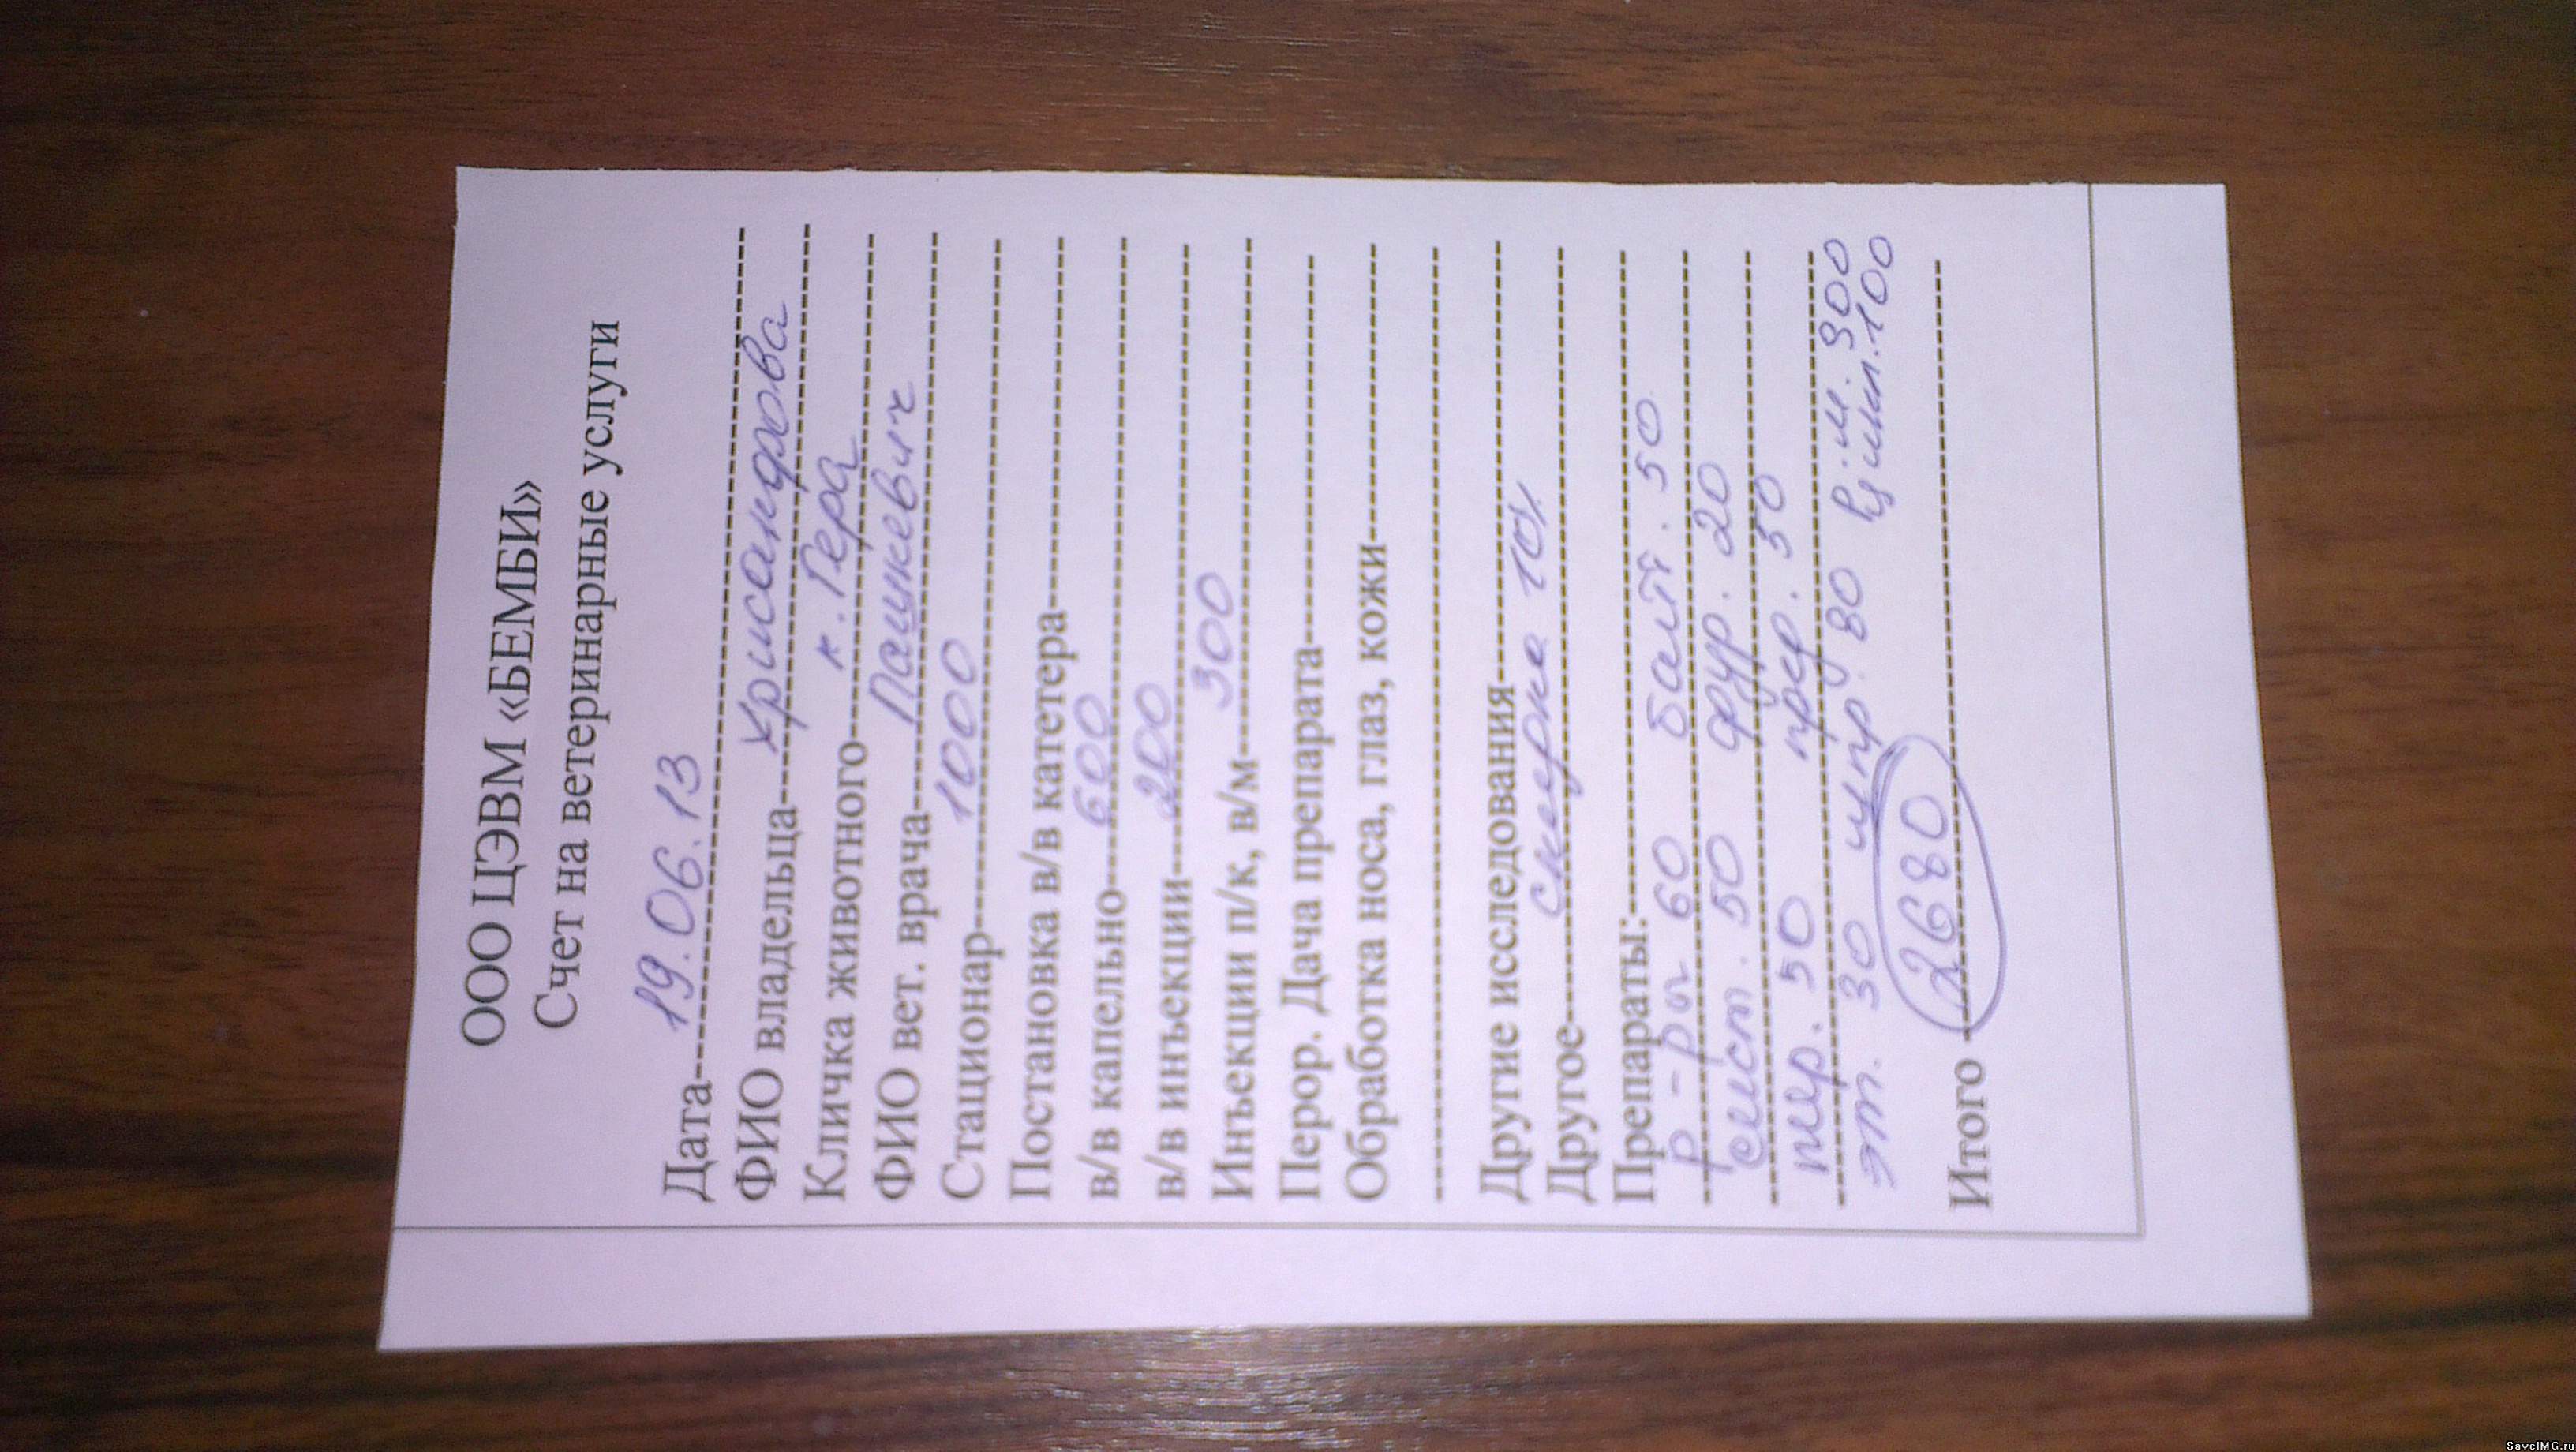 ООО ЦЭВМ «БЕМБИ»
Счет на ветеринарные услуги
Дата 19.06.13
ФИО владельца Хрисанфрова
Кличка животного к. Гера
ФИО вет. врача Пашкевич
Стационар 1000
Постановка в/в катетера
в/в капельно 600
в/в инъекции 200
Инъекции п/к, в/м 300
Перор. Дача препарата
Обработка носа, глаз, кожи
Другие исследования
Другое скидка 10%
Препараты:
р-ры 60 байт. 50
50 фур. 20
цер. 50 пред. 50
эт. 30 80 300
100
Итого 2680
SaveIMG.ru